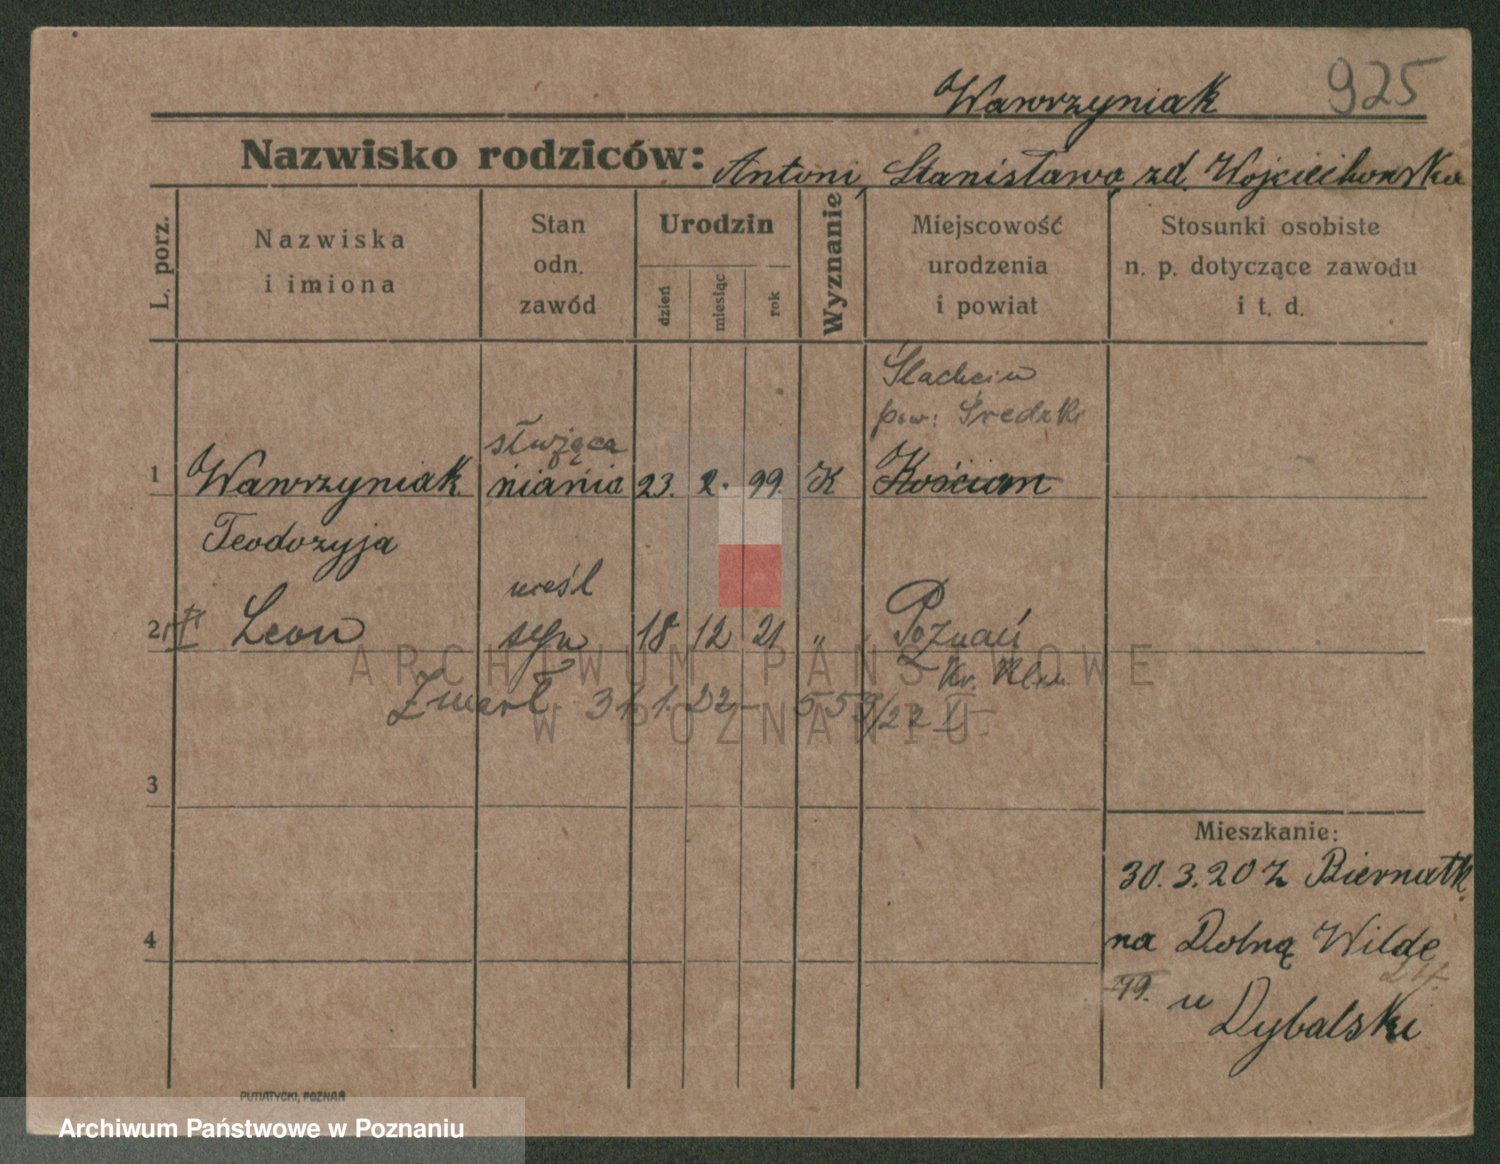 Wawrzyniak 925
Nazwisko rodziców: Antoni, Stanisława zd. Wojciechowska
L. porz.
Nazwiska
i imiona
Stan
odn.
zawód
Urodzin
dzień
miesiąc
rok
Wyznanie
Miejscowość
urodzenia
i powiat
Stosunki osobiste
n. p. dotyczące zawodu
i t. d.
Ślachcin
pow: Średzki
służąca
1 Wawrzyniak niania 23. 2. 99. K Kościan
Teodozyja
nieśl
2 Leon syn 18 12 21 „ Poznań
Zmarł 31.1.22 — 559/22
3
Mieszkanie:
30.3.20 z Biernatk.
4
na Dolną Wildę
79. u Dybalski
PUTIATYCKI, POZNAŃ
ARCHIWUM PAŃSTWOWE
W POZNANIU
Archiwum Państwowe w Poznaniu